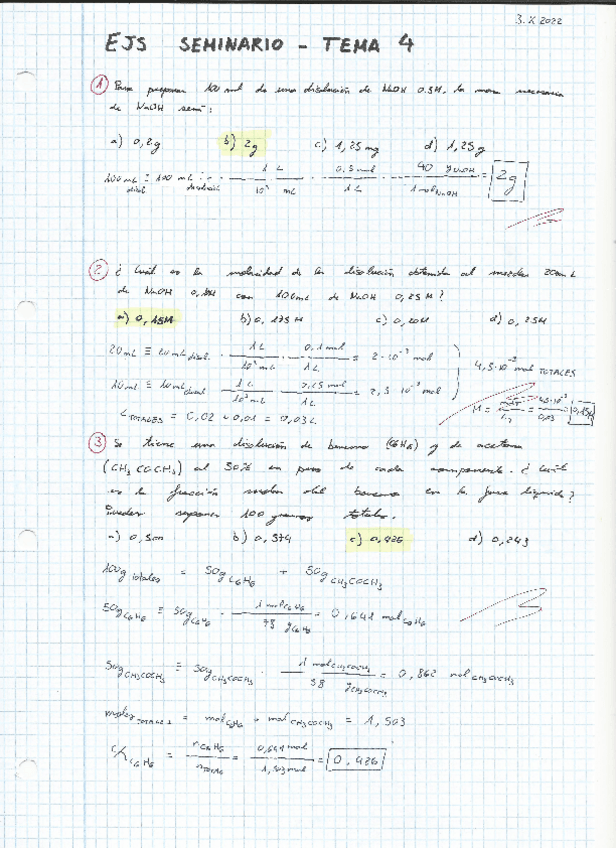 3. X 2022
EJS SEMINARIO - TEMA 4
1 Para preparar 100 ml de una disolución de NaOH 0.5M, la masa necesaria
de NaOH será:
a) 0,2g b) 2g c) 1,25 mg d) 1,25 g
100 mL disol ≡ 100 mL disolución · 1 L / 10³ mL · 0,5 mol / 1 L · 40 g NaOH / 1 mol NaOH = 2g
2 ¿Cuál es la molaridad de la disolución obtenida al mezclar
de NaOH con de NaOH 0,25 M?
a) 0,15M b) 0,175 M c) 0,20M d) 0,25M
20 mL ≡ 20 mL disol. · 1 L / 10³ mL · 0,1 mol / 1 L = 2·10⁻³ mol
10 mL ≡ 10 mL disol · 1 L / 10³ mL · 0,25 mol / 1 L = 2,5 10⁻³ mol
4,5·10⁻³ mol TOTALES
L TOTALES = 0,02 + 0,01 = 0,03 L
M = = 4,5·10⁻³ / 0,03 = 0,15M
3 Se tiene una disolución de benceno (C6H6) y de acetona
(CH3COCH3) al 50% en peso de cada componente. ¿Cuál
es la fracción molar del benceno en la fase líquida?
Puedes suponer 100 gramos totales.
a) 0,500 b) 0,574 c) 0,426 d) 0,243
100g totales = 50g C6H6 + 50g CH3COCH3
50g C6H6 ≡ 50g C6H6 · 1 mol C6H6 / 78 g C6H6 = 0,641 mol C6H6
50g CH3COCH3 ≡ 50g CH3COCH3 · 1 mol CH3COCH3 / 58 g CH3COCH3 = 0,862 mol CH3COCH3
moles TOTALES = mol C6H6 + mol CH3COCH3 = 1,503
χ C6H6 = n C6H6 / n TOTALES = 0,641 mol / 1,503 mol = 0,426